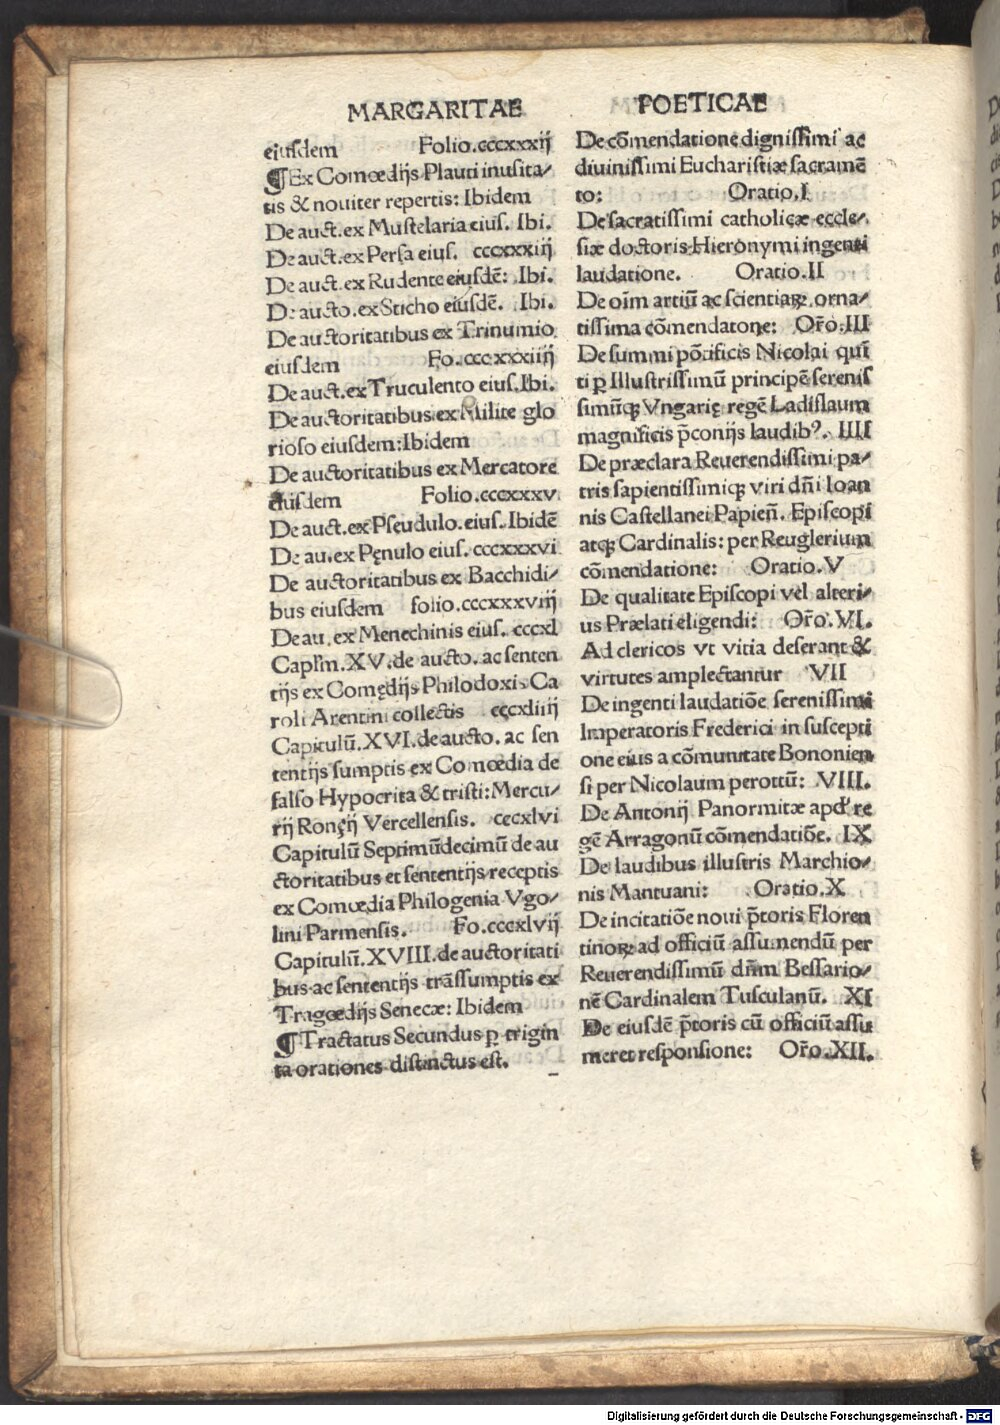 MARGARITAE POETICAE
eiusdem Folio.cccxxxij
¶Ex Comœdijs Plauti inusita/
tis & nouiter repertis: Ibidem
De auct.ex Mustelaria eius. Ibi.
De auct.ex Persa eius. cccxxxiij
De auct.ex Rudente eiusdē: Ibi.
De aucto.ex Sticho eiusdē. Ibi.
De auctoritatibus ex Trinumio
eiusdem Fo.cccxxxiiij
De auct.ex Truculento eius.Ibi.
De auctoritatibus ex Milite glo
rioso eiusdem:Ibidem
De auctoritatibus ex Mercatore
eiusdem Folio.cccxxxv
De auct.ex Pseudulo.eius.Ibidē
De au.ex Pęnulo eius.cccxxxvi
De auctoritatibus ex Bacchidi/
bus eiusdem folio.cccxxxviij
De au.ex Menechinis eius. cccxl
Capl'm.XV.de aucto.ac senten
tijs ex Comędijs Philodoxis Ca
roli Arentini collectis cccxliiij
Capitulū.XVI.de aucto. ac sen
tentijs sumptis ex Comœdia de
falso Hypocrita & tristi:Mercu/
rij Ronçij Vercellensis. cccxlvi
Capitulū Septimūdecimū de au
ctoritatibus et sententijs receptis
ex Comœdia Philogenia Vgo/
lini Parmensis. Fo.cccxlvij
Capitulū.XVIII.de auctoritati
bus ac sententijs trāssumptis ex
Tragœdijs Senecæ: Ibidem
¶Tractatus Secundus ꝑ trigin
ta orationes distinctus est.
De cōmendatione dignissimi ac
diuinissimi Eucharistiæ sacramē
to: Oratio.I
De sacratissimi catholicæ eccle/
siæ doctoris Hieronymi ingenti
laudatione. Oratio.II
De oīm artiū ac scientiaꝝ orna/
tissima cōmendatone: Or̄o.III
De summi pōtificis Nicolai quī
ti ꝑ Illustrissimū principē serenis
simūqꝫ Vngarię regē Ladislaum
magnificis p̄conijs laudibꝰ. IIII
De præclara Reuerendissimi pa/
tris sapientissimiqꝫ viri dn̄i Ioan
nis Castellanei Papien̄. Episcopi
atqꝫ Cardinalis: per Reuglerium
cōmendatione: Oratio.V
De qualitate Episcopi vel alteri/
us Prælati eligendi: Or̄o.VI.
Ad clericos vt vitia deserant &
virtutes amplectantur VII
De ingenti laudatiōe serenissimi
Imperatoris Frederici in suscepti
one eius a cōmunitate Bononien
si per Nicolaum perottū: VIII.
De Antonij Panormitæ apd' re
gē Arragonū cōmendatiōe. IX
De laudibus illustris Marchio/
nis Mantuani: Oratio.X
De incitatiōe noui p̄toris Floren
tinoꝝ ad officiū assumendū per
Reuerendissimū dn̄m Bessario/
nē Cardinalem Tusculanū. XI
De eiusdē p̄toris cū officiū assu
meret responsione: Or̄o.XII.
Digitalisierung gefördert durch die Deutsche Forschungsgemeinschaft - DFG